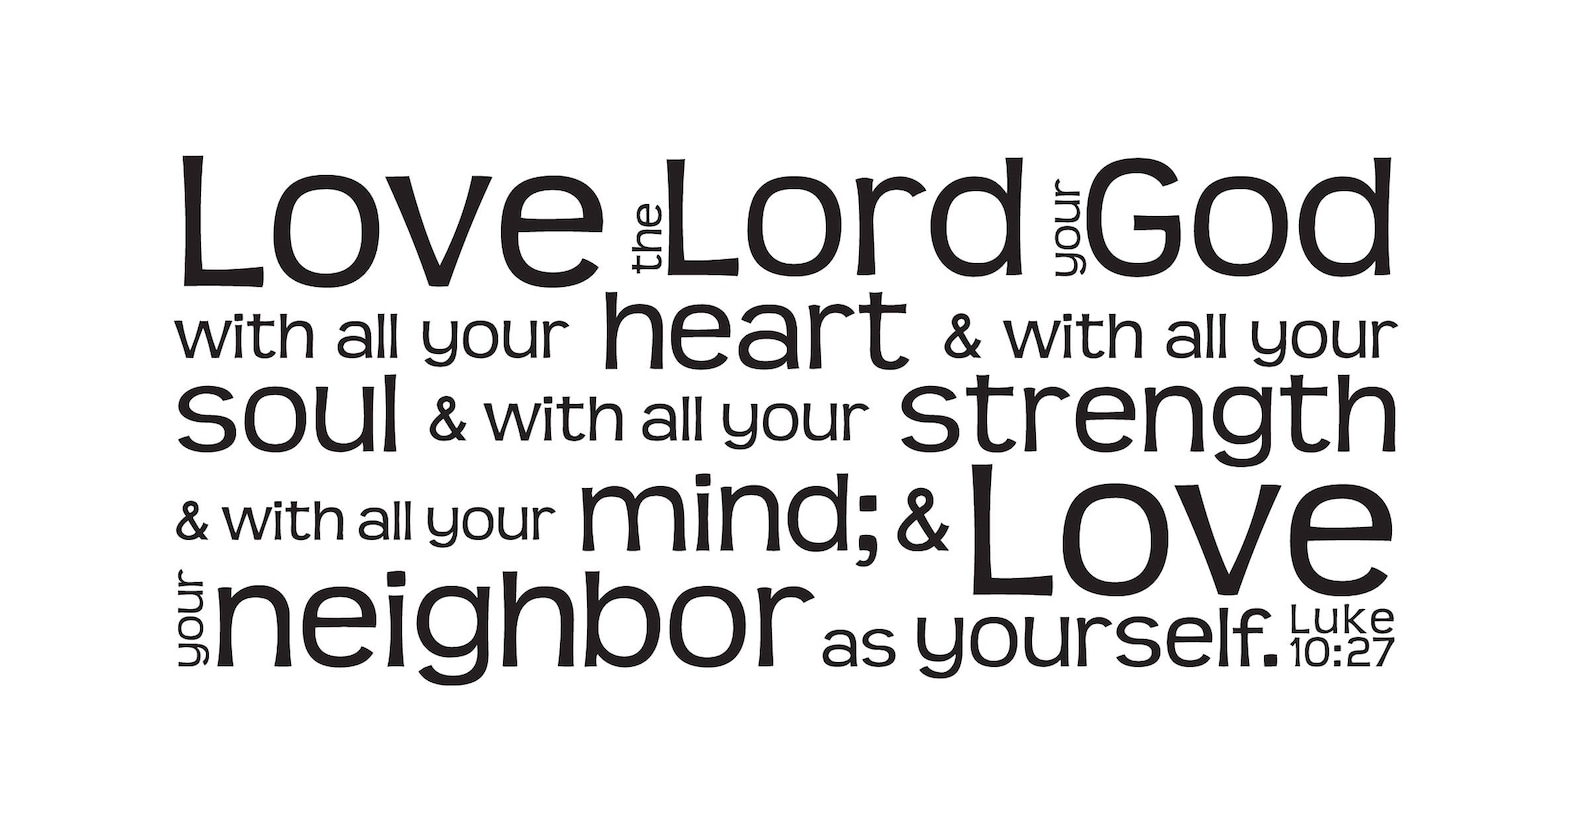 Love the Lord your God
with all your heart & with all your
soul & with all your strength
& with all your mind; & Love
your neighbor as yourself. Luke 10:27